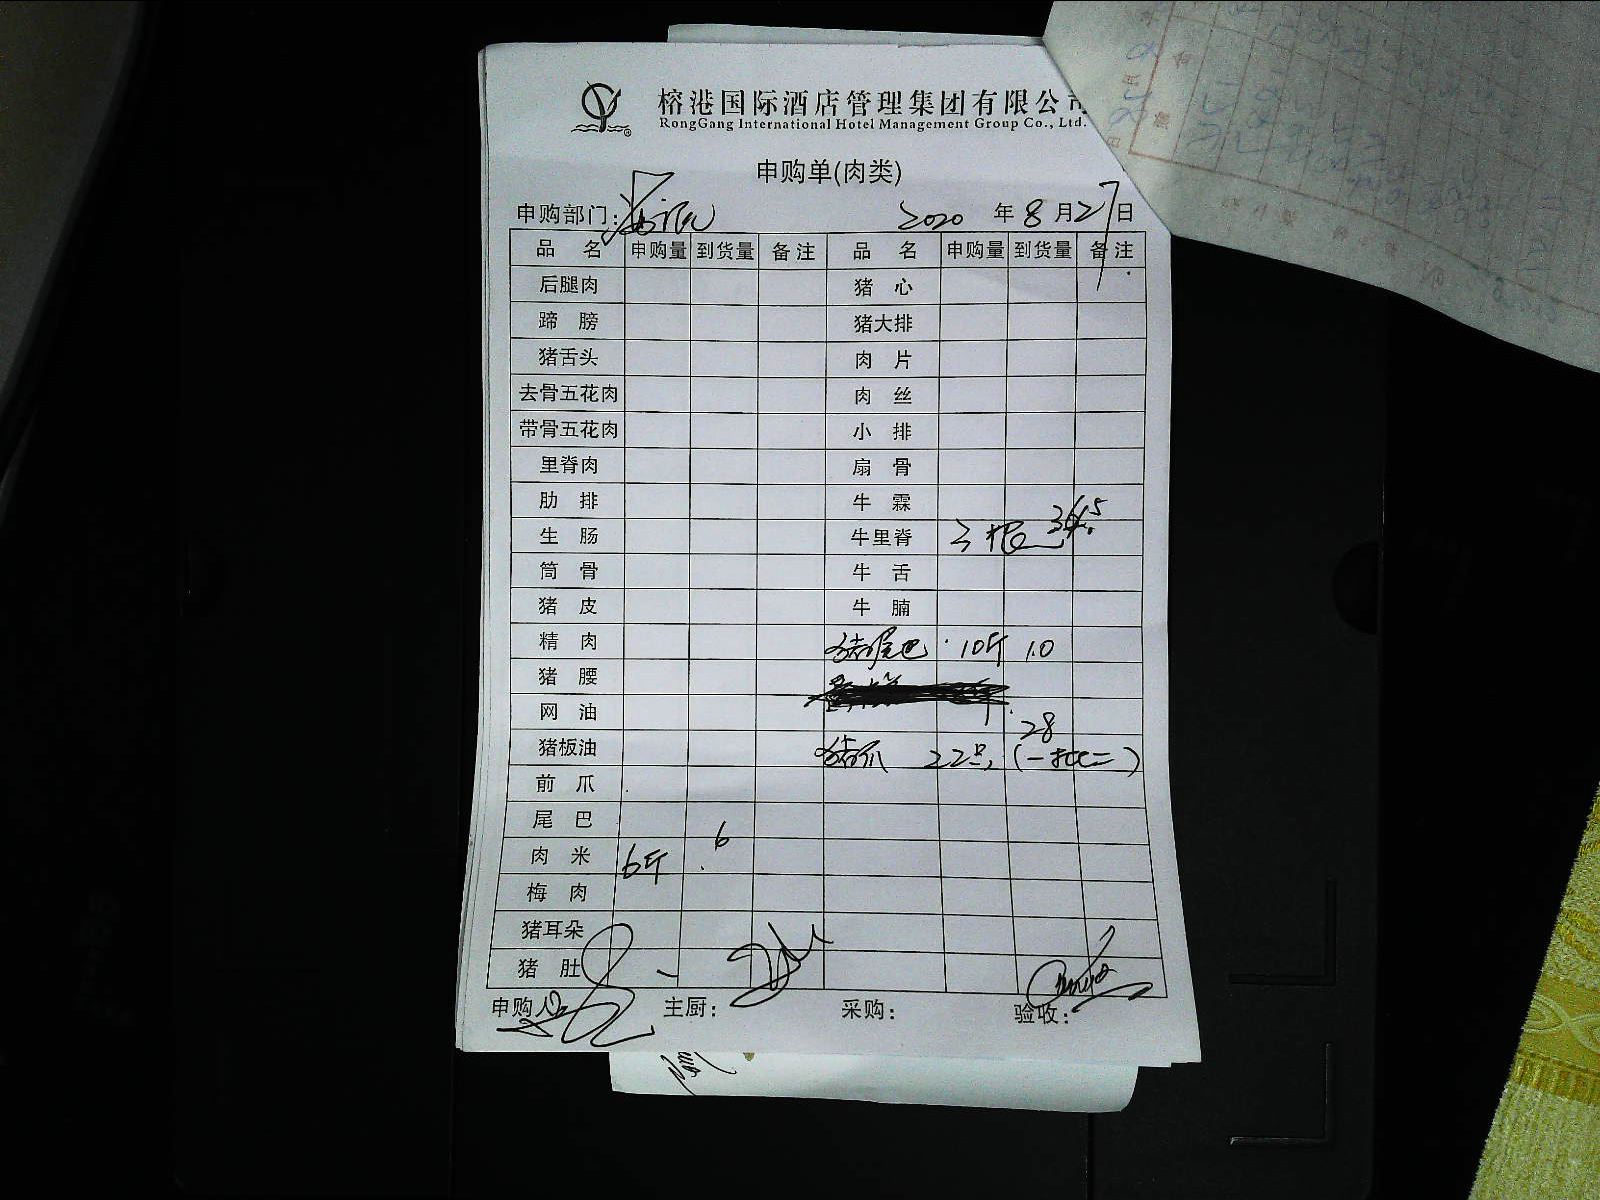 榕港国际酒店管理集团有限公司
RongGang International Hotel Management Group Co., Ltd.
申购单(肉类)
申购部门: 2020 年 8 月 27 日
品 名 申购量 到货量 备注 品 名 申购量 到货量 备注
后腿肉 猪 心
蹄 膀 猪大排
猪舌头 肉 片
去骨五花肉 肉 丝
带骨五花肉 小 排
里脊肉 扇 骨
肋 排 牛 霖
生 肠 牛里脊 3根
筒 骨 牛 舌
猪 皮 牛 腩
精 肉 猪尾巴 10斤 10
猪 腰
网 油
猪板油 猪爪 22只 28 (一批二)
前 爪
尾 巴
肉 米 6斤 6
梅 肉
猪耳朵
猪 肚
申购人 主厨: 采购: 验收: